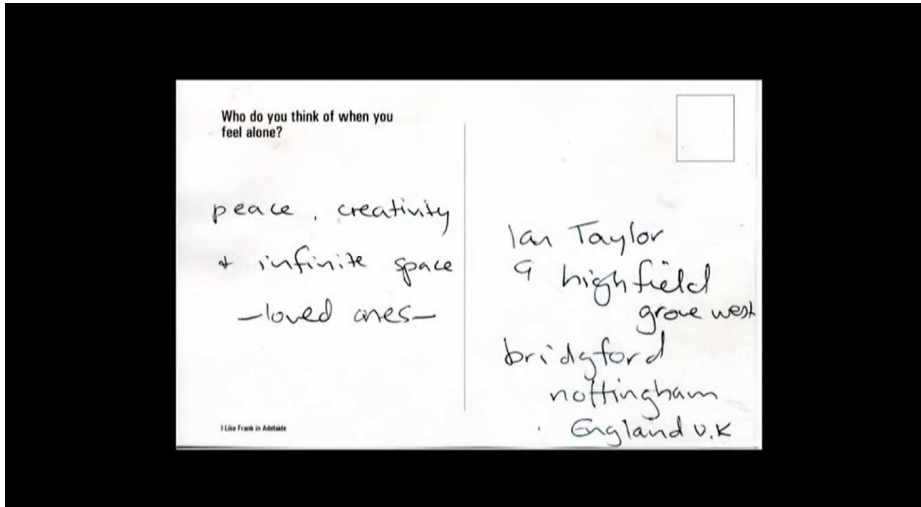 Who do you think of when you
feel alone?
peace, creativity
+ infinite space
–loved ones–
I Like Frank in Adelaide
Ian Taylor
9 highfield
grove west
bridgford
nottingham
England U.K